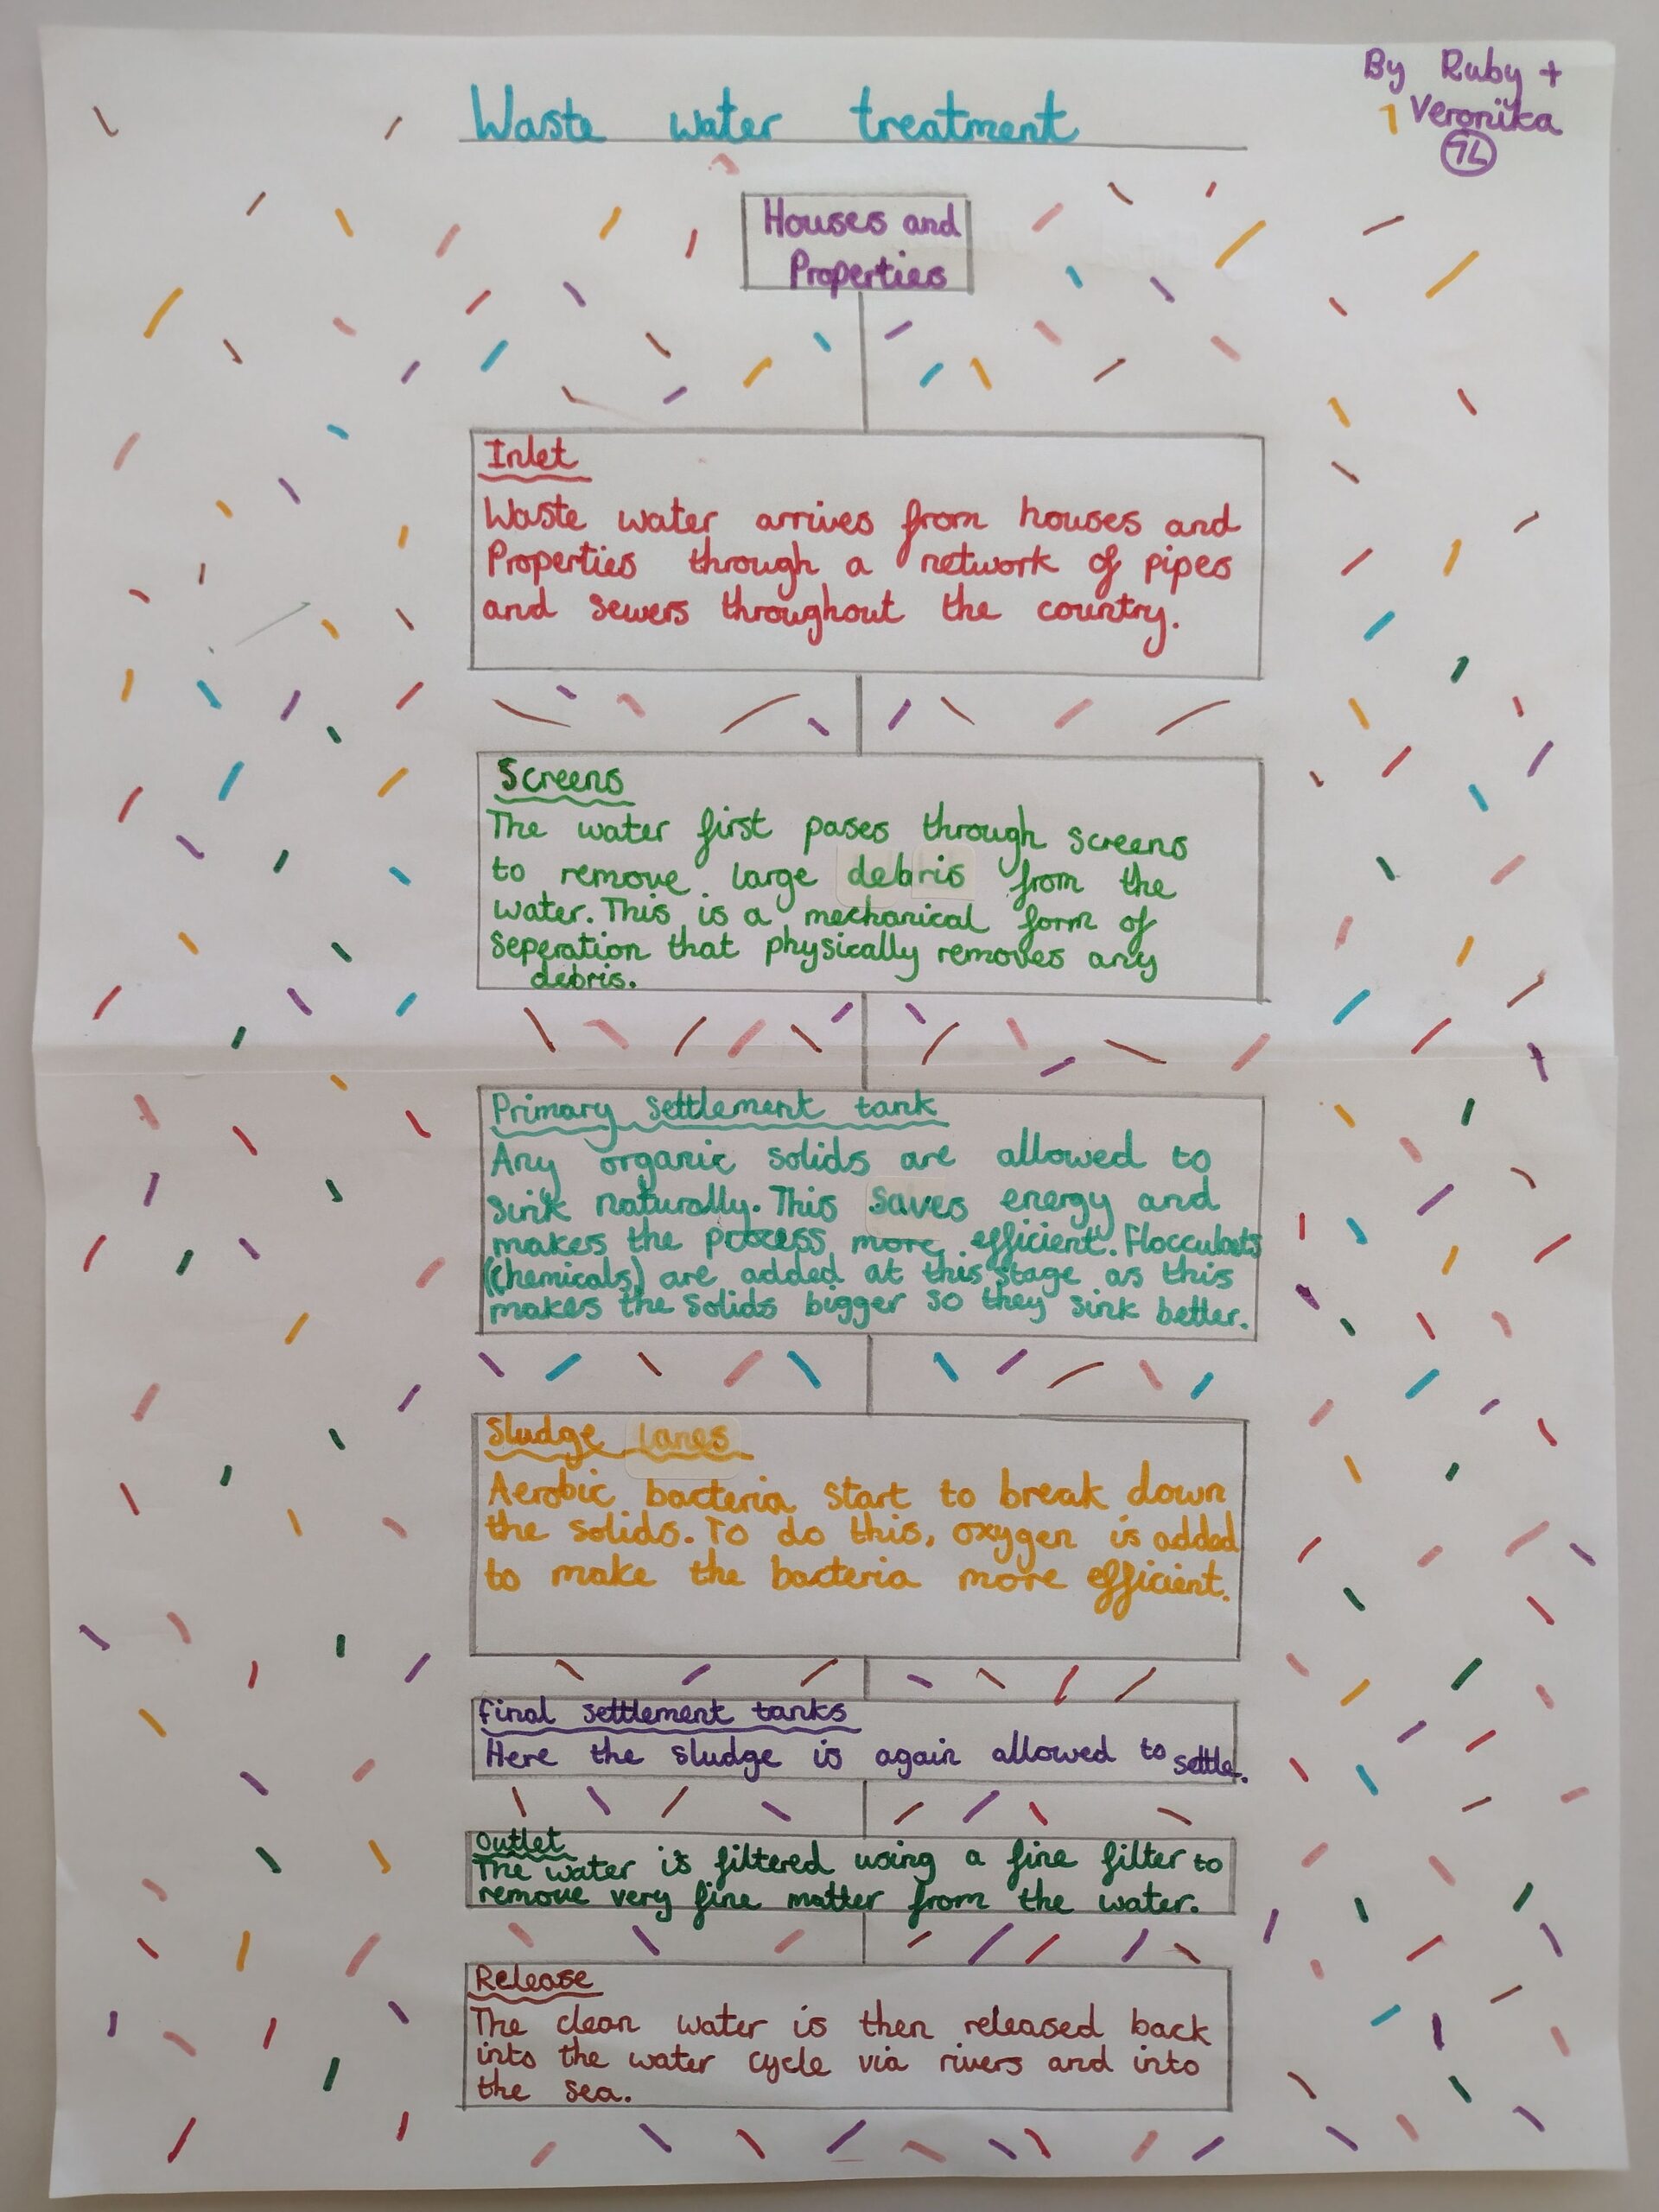 By Ruby +
Veronika
7L
Waste water treatment
Houses and
Properties
Inlet
Waste water arrives from houses and
Properties through a network of pipes
and sewers throughout the country.
Screens
The water first pases through screens
to remove large debris from the
water. This is a mechanical form of
seperation that physically removes any
debris.
Primary settlement tank
Any organic solids are allowed to
sink naturally. This saves energy and
makes the process more efficient. Flocculants
(chemicals) are added at this stage as this
makes the solids bigger so they sink better.
Sludge lanes
Aerobic bacteria start to break down
the solids. To do this, oxygen is added
to make the bacteria more efficient.
Final settlement tanks
Here the sludge is again allowed to settle.
Outlet
The water is filtered using a fine filter to
remove very fine matter from the water.
Release
The clean water is then released back
into the water cycle via rivers and into
the sea.